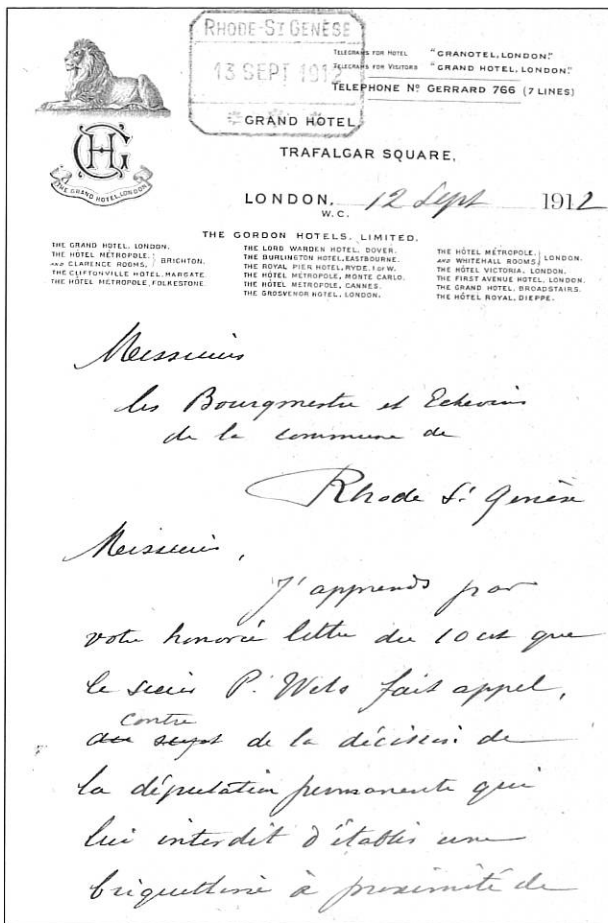 RHODE-ST GENÈSE
13 SEPT 1912
TELEGRAMS FOR HOTEL "GRANOTEL, LONDON."
TELEGRAMS FOR VISITORS "GRAND HOTEL, LONDON."
TELEPHONE No GERRARD 766 (7 LINES)
GRAND HOTEL,
TRAFALGAR SQUARE,
GH
THE GRAND HOTEL, LONDON
LONDON, 12 Sept 1912
W.C.
THE GORDON HOTELS, LIMITED.
THE GRAND HOTEL, LONDON.
THE HÔTEL MÉTROPOLE, AND CLARENCE ROOMS, } BRIGHTON.
THE CLIFTONVILLE HOTEL, MARGATE.
THE HÔTEL MÉTROPOLE, FOLKESTONE.
THE LORD WARDEN HOTEL, DOVER.
THE BURLINGTON HOTEL, EASTBOURNE.
THE ROYAL PIER HOTEL, RYDE, I OF W.
THE HÔTEL MÉTROPOLE, MONTE CARLO.
THE HÔTEL MÉTROPOLE, CANNES.
THE GROSVENOR HOTEL, LONDON.
THE HÔTEL MÉTROPOLE, AND WHITEHALL ROOMS, } LONDON.
THE HÔTEL VICTORIA, LONDON.
THE FIRST AVENUE HOTEL, LONDON.
THE GRAND HOTEL, BROADSTAIRS.
THE HÔTEL ROYAL, DIEPPE.
Messieurs
les Bourgmestre et Echevins
de la commune de
Rhode St Genèse
Messieurs,
J'apprends par
votre honorée lettre du 10 ct que
le sieur P. Wets fait appel,
contre
de la décision de
la députation permanente qui
lui interdit d'établir une
briquetterie à proximité de